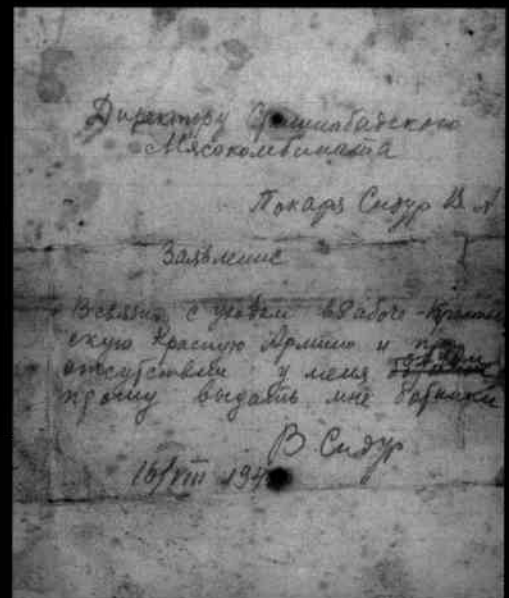 Директору Сталинабадского
Мясокомбината
Токаря Сидур В А
Заявление
В связи с уходом в Рабоче-Крестьян
скую Красную Армию и при
отсутствии у меня обуви
прошу выдать мне ботинки
В Сидур
16/VIII 194